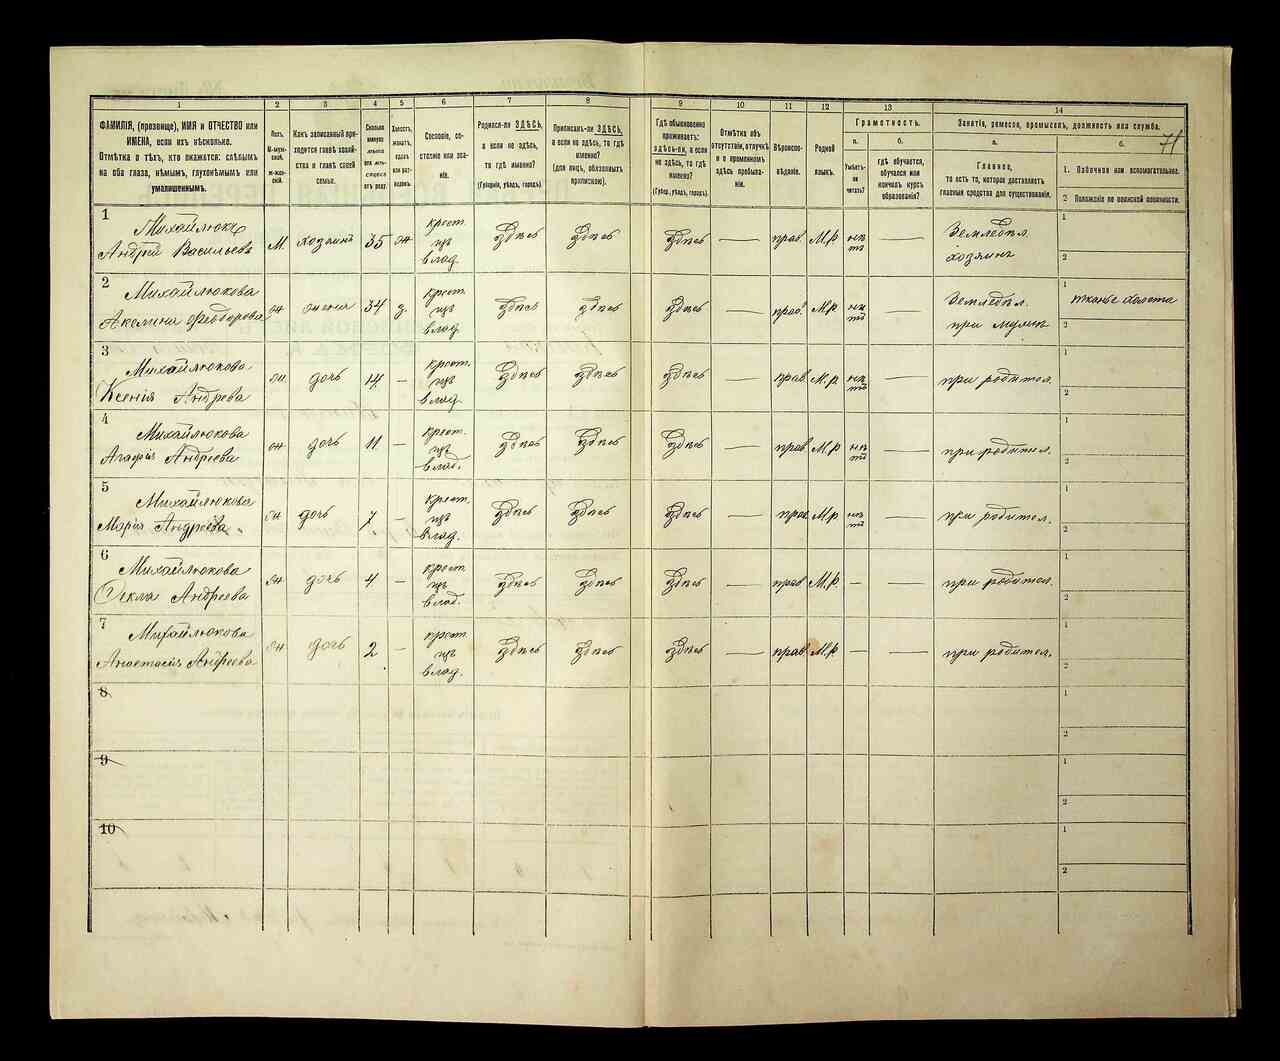 71
1 2 3 4 5 6 7 8 9 10 11 12 13 14
ФАМИЛІЯ, (прозвище), ИМЯ и ОТЧЕСТВО или
ИМЕНА, если ихъ нѣсколько.
Отмѣтка о тѣхъ, кто окажется: слѣпымъ
на оба глаза, нѣмымъ, глухонѣмымъ или
умалишеннымъ.
Полъ.
М-муж-
ской.
Ж-жен-
скій.
Какъ записанный при-
ходится главѣ хозяй-
ства и главѣ своей
семьи.
Сколько
минуло
лѣтъ
или мѣ-
сяцевъ
отъ роду.
Холостъ,
женатъ,
вдовъ
или раз-
веденъ.
Сословіе, со-
стояніе или зва-
ніе.
Родился-ли ЗДѢСЬ,
а если не здѣсь,
то гдѣ именно?
(Губернія, уѣздъ, городъ).
Приписанъ-ли ЗДѢСЬ,
а если не здѣсь, то гдѣ
именно?
(для лицъ, обязанныхъ
припискою).
Гдѣ обыкновенно
проживаетъ:
здѣсь-ли, а если
не здѣсь, то гдѣ
именно?
(Губер., уѣздъ, городъ).
Отмѣтка объ
отсутствіи, отлучкѣ
и о временномъ
здѣсь пребыва-
ніи.
Вѣроиспо-
вѣданіе.
Родной
языкъ.
Грамотность.
а.
Умѣетъ-
ли
читать?
б.
гдѣ обучается,
обучался или
кончилъ курсъ
образованія?
Занятія, ремесло, промыселъ, должность или служба.
а.
Главное,
то есть то, которое доставляетъ
главныя средства для существованія.
б.
1. Побочное или вспомогательное.
2 Положеніе по воинской повинности.
1 Михайлюкъ
Андрій Васильевъ М. хозяинъ 35 ж крест. изъ влад. здѣсь здѣсь здѣсь — прав. М.р нѣтъ — Земледѣл. хозяинъ 1 2
2 Михайлюкова
Аксинія Феодорова ж жена 34 з. крест. изъ влад. здѣсь здѣсь здѣсь — прав. М.р нѣтъ — Земледѣл. при мужѣ 1 тканье холста 2
3 Михайлюкова
Ксенія Андреева ж. дочь 14 — крест. изъ влад. здѣсь здѣсь здѣсь — прав. М.р нѣтъ — при родител. 1 2
4 Михайлюкова
Агафія Андреева ж дочь 11 — крест. изъ влад. здѣсь здѣсь здѣсь — прав. М.р нѣтъ — при родител. 1 2
5 Михайлюкова
Марія Андреева ж дочь 7 — крест. изъ влад. здѣсь здѣсь здѣсь — прав. М.р нѣтъ — при родител. 1 2
6 Михайлюкова
Ѳекла Андреева ж дочь 4 — крест. изъ влад. здѣсь здѣсь здѣсь — прав М.р. — — при родител. 1 2
7 Михайлюкова
Анастасія Андреева ж дочь 2 — крест. изъ влад. здѣсь здѣсь здѣсь — прав. М.р. — — при родител. 1 2
8 1 2
9 1 2
10 1 2